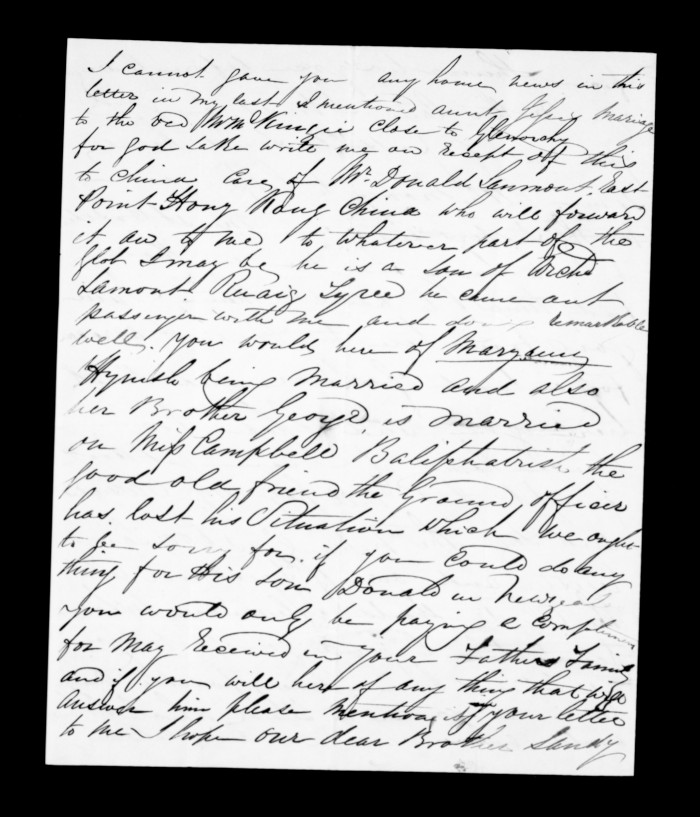 I cannot gave you any home news in this
letter in my last I mentioned aunt mariage
to the old close to Glenorchy
for god sake write me on Recept off this
to China Care of Mr Donald Lanmont East
Point Hong Kong China who will forward
it on to me to whatever part of the
glob I may be he is a son of Archd
Lamont Ruaig Tyree he came out
passenger with me and doing remarkable
well. you would here of Maryann
Hynish being married and also
her Brother George is married
on Miss Campbell Baliphatrish the
good old friend the Ground officer
has lost his Situation which we ought
to be sorry for. if you could do any
thing for His son Donald in
you would only be paying a Complimen
for May Received in your Fathers Family
and if you will here of any thing that will
Answer him please mention it your letter
to me I hope our dear Brother Sandy